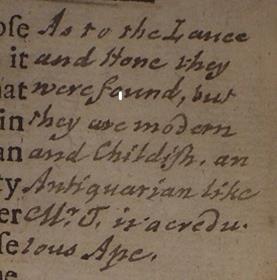 ose As to the Lance
it and Hone they
hat were found, but
in they are modern
an and Childish, an
ty Antiquarian like
er Mr. T. is a credu-
se lous Ape.